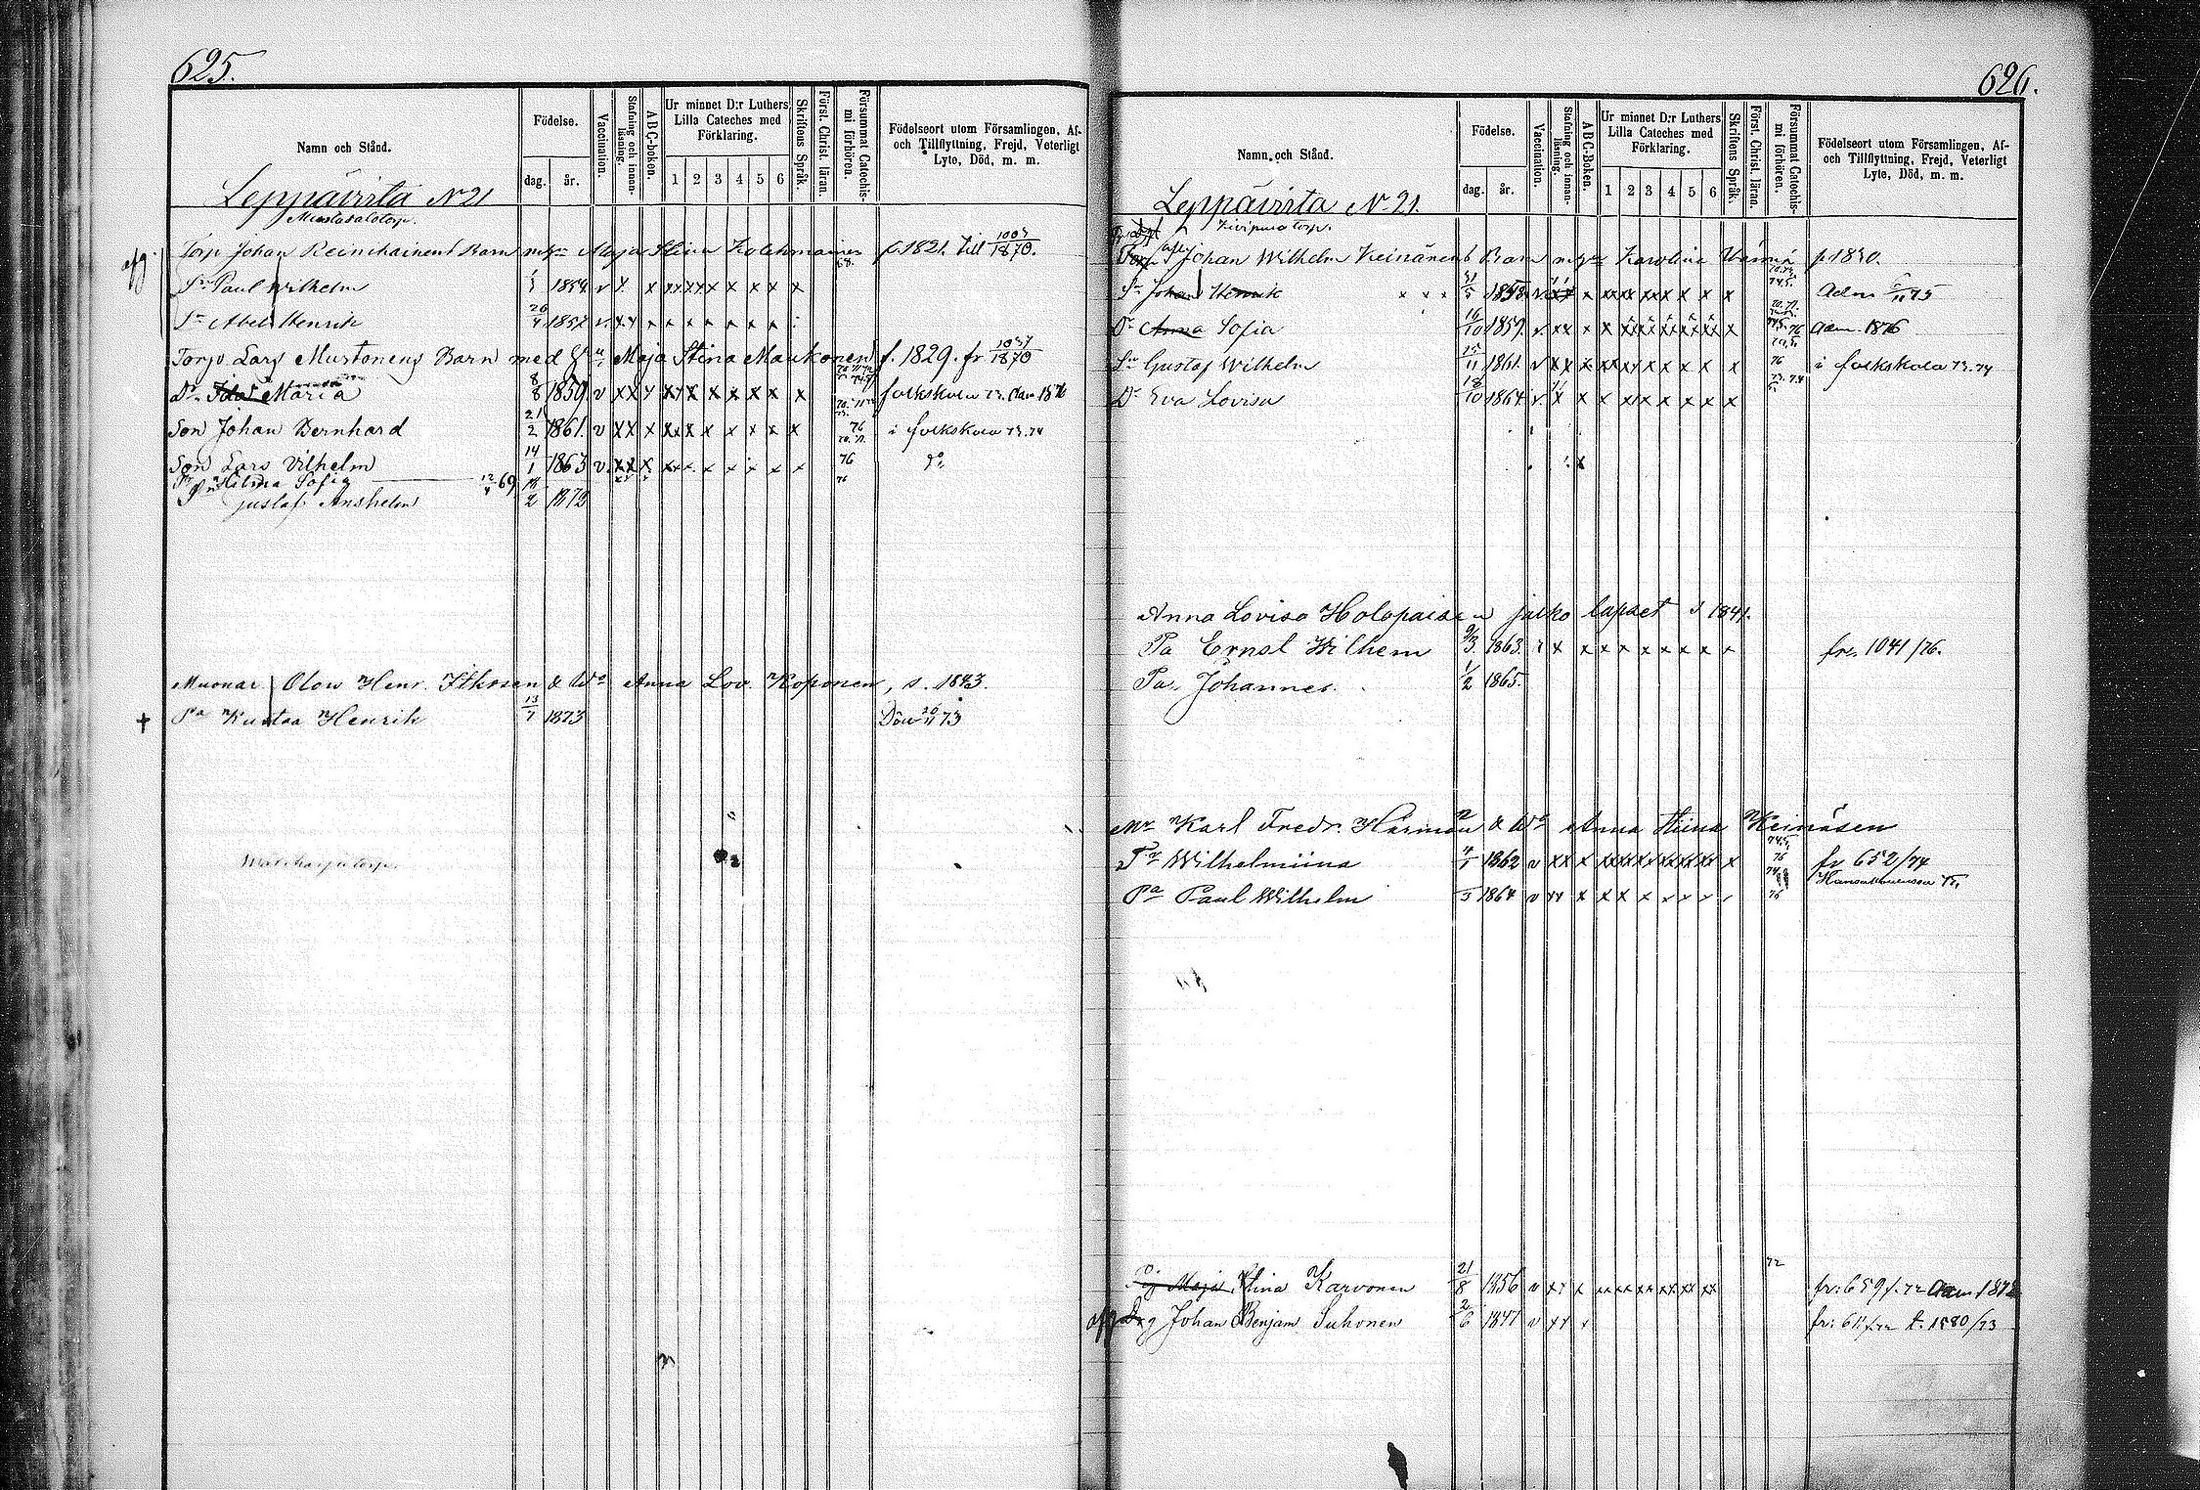 625.
Namn och Stånd.
Födelse.
dag.
år.
Vaccination.
Stafning och innan-läsning.
ABC-boken.
Ur minnet D:r Luthers
Lilla Cateches med
Förklaring.
1 2 3 4 5 6
Skriftens Språk.
Först. Christ. läran.
Försummat Catechis-mi förhören.
Födelseort utom Församlingen, Af-
och Tillflyttning, Frejd, Veterligt
Lyte, Död, m. m.
Leppävirta N 21
Mustasalotorp.
afg. Torp Johan Reinikainens Barn m hu Maja Stina Kolehmainen f. 1821. till 1003/1870.
Sn Paul Wilhelm 1854 v x x xx xx x x x x
Sn Abel Henrik 26/4 1857 v. xx x x x x x x x
Torp. Lars Mustonens Barn med Hu Maja Stina Maukonen f. 1829. fr 1037/1870
Dr Maria 8/8 1859 v xx x xx x x x x x x folkskola 73. Adm 1876
Son Johan Bernhard 21/2 1861. v xx x xx x x x x x x 76 i folkskola 73.74
Son Lars Vilhelm 14/1 1863 v. xx x xx x x x x x x 76 do
Dr Hilma Sofia 12/4 69 76
Gustaf Anshelm 18/2 1873
Muonar. Olow Henr. Itkonen & Wo Anna Lov. Koponen, s. 1843.
† Pa Kustaa Henrik 13/7 1873 Död 26/11 73
626.
Namn och Stånd.
Födelse.
dag.
år.
Vaccination.
Stafning och innan-läsning.
ABC-Boken.
Ur minnet D:r Luthers
Lilla Cateches med
Förklaring.
1 2 3 4 5 6
Skriftens Språk.
Först. Christ. läran.
Försummat Catechis-mi förhören.
Födelseort utom Församlingen, Af-
och Tillflyttning, Frejd, Veterligt
Lyte, Död, m. m.
Leppävirta N 21.
Kivipuro torp.
Torp Johan Wilhelm Keinänens Barn m hu Karolina f 1830.
Sn Johan Henrik x x x 31/5 1858 v. xx x xx xx xx x x x x Adm 75
Dr Anna Sofia 16/10 1859. v. xx x x xx xx xx xx xx x 76 Adm. 1876
Sn Gustaf Wilhelm 15/11 1861. v xx x x xx x x x x x 76 i folkskola 73.74
Dr Eva Lovisa 18/10 1864. v. x x x xx x x x x x
Anna Lovisa Holopaisen jalko lapset s 1841.
Pa Ernst Wilhem 9/3 1863. x x x x x x x x x fr. 1041/76.
Pa. Johannes. 1/2 1865.
Mr Karl Fredr. Härmän & Wo Anna Stiina Keinäsen
Tr Wilhelmiina 4/1 1862 v xx x xx xx xx xx xx xx x 76 fr 652/74
Pa Paul Wilhelm /5 1864 v xx x x x x x x x x 76
Pig Maja Stina Karvonen 21/8 1856 v xx x xx xx xx xx xx xx 72 fr: 659 f. 72 Adm 1872
afg Drg Johan Benjam Suhonen 2/6 1847 v xx x t. 1580/73